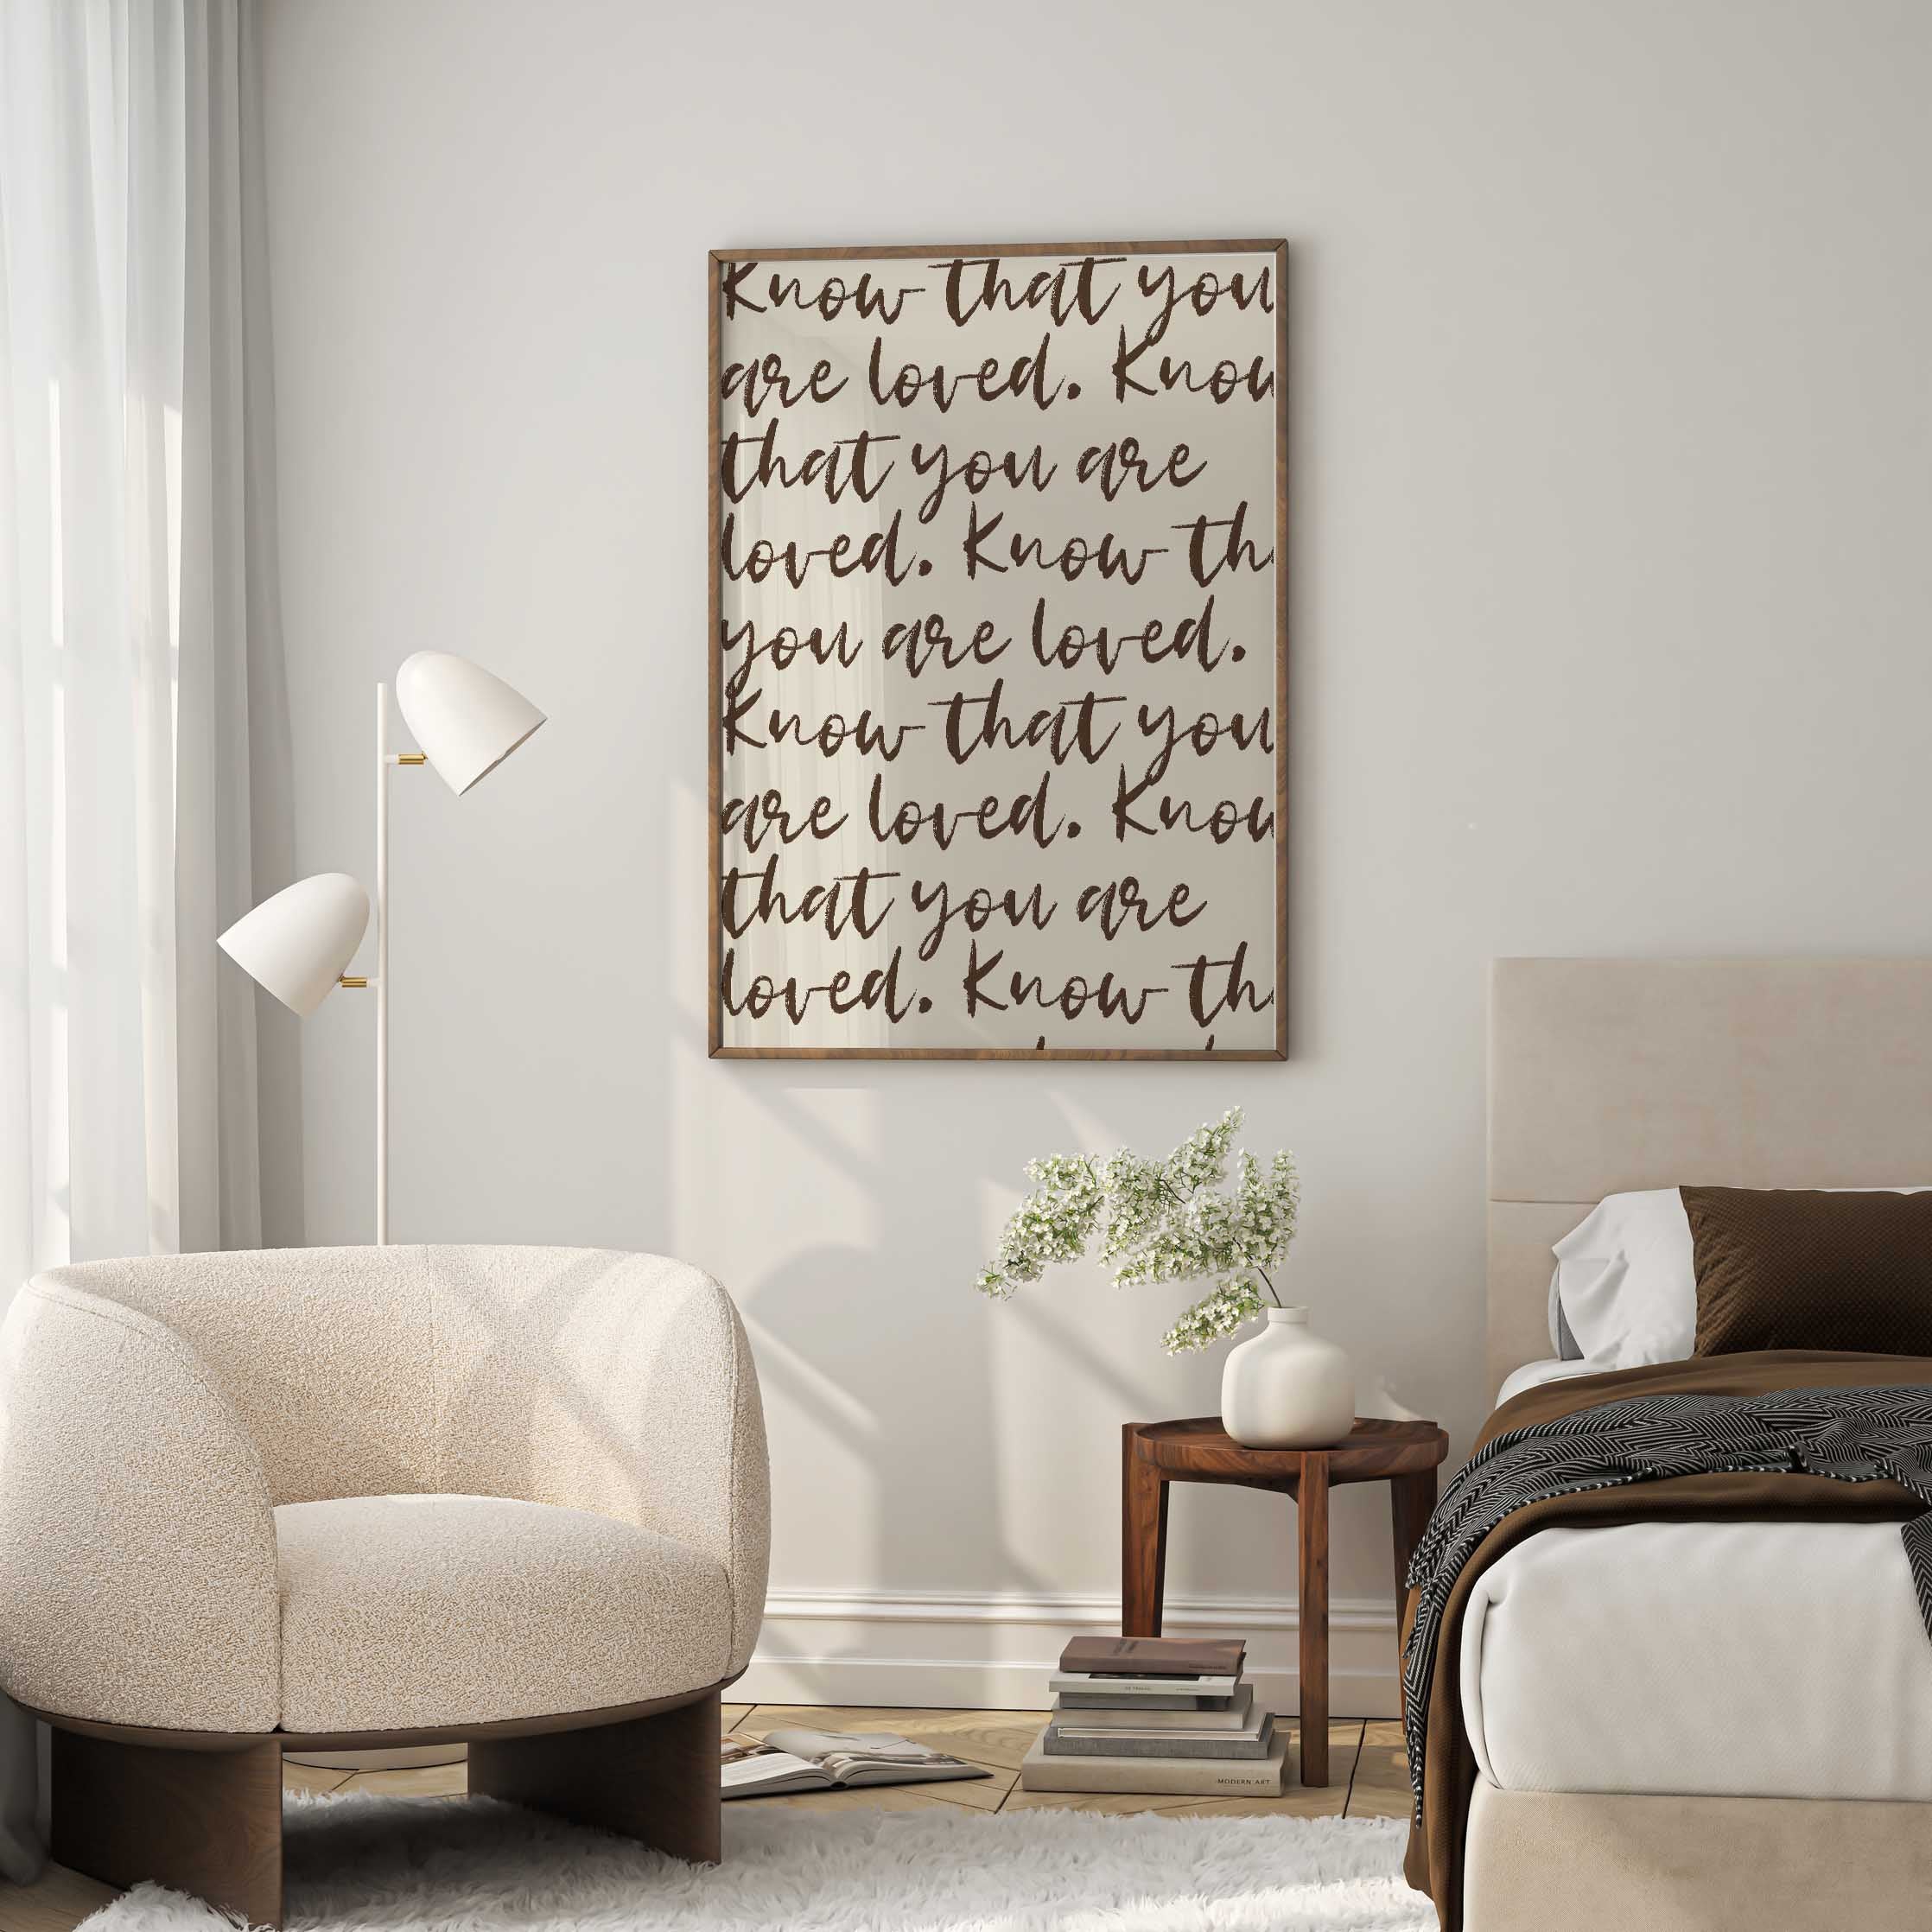 Know that you
are loved. Know
that you are
loved. Know th
you are loved.
Know that you
are loved. Know
that you are
loved. Know th
MODERN ART